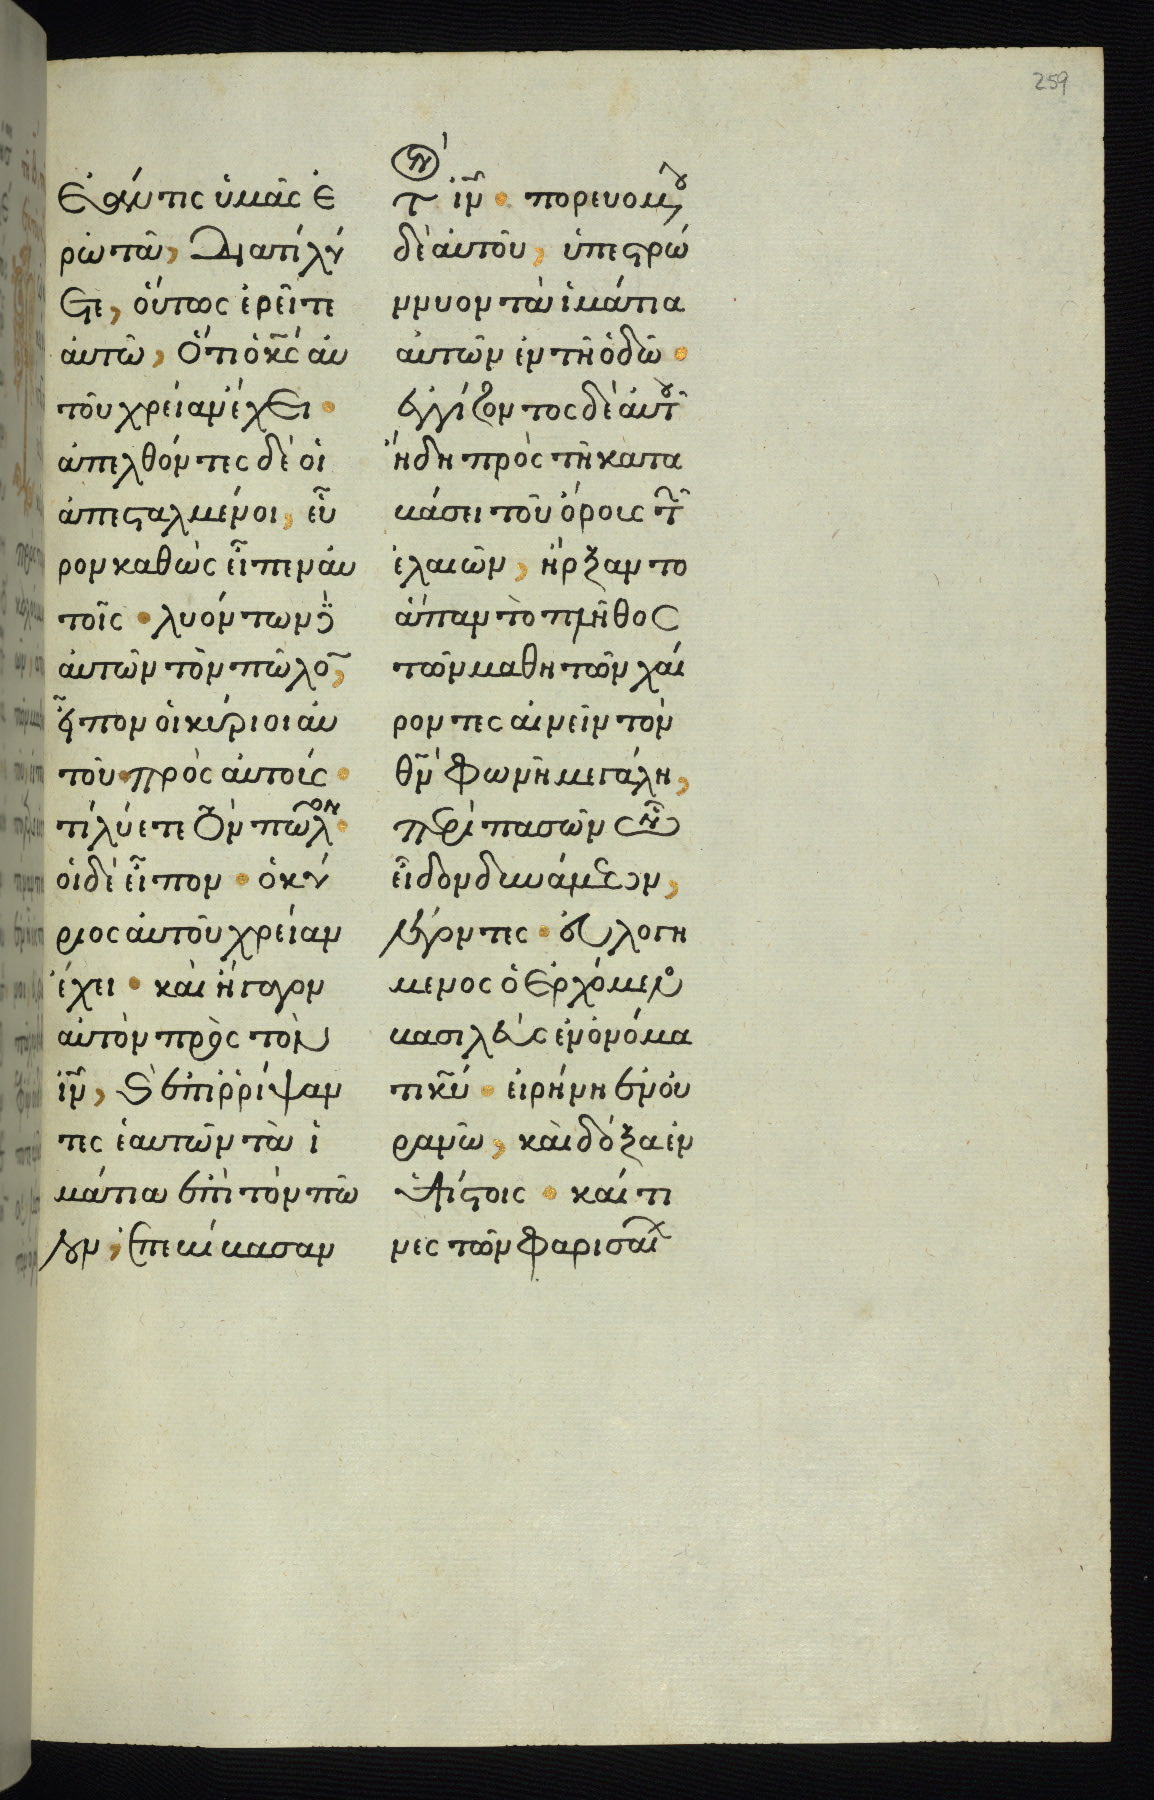 259
ἐάν τις ὑμᾶς ἐ
ρωτᾶ, διατί λύ
ετε, οὕτως ἐρεῖτε
αὐτῶ, ὅτι ὁ κς αυ
τοῦ χρείαν ἔχει·
ἀπελθόντες δὲ οἱ
ἀπεσταλμένοι, εὗ
ρον καθὼς εἶπεν αὐ
τοῖς· λυόντων δὲ
αὐτῶν τὸν πῶλον,
εἶπον οἱ κύριοι αὐ
τοῦ πρὸς αὐτούς·
τί λύετε τὸν πῶλον·
οἱ δὲ εἶπον· ὁ κύ
ριος αὐτοῦ χρείαν
ἔχει· καὶ ἤγαγον
αὐτὸν πρὸς τὸν
ιν, καὶ ἐπιρρίψαν
τες ἑαυτῶν τὰ ἱ
μάτια ἐπὶ τὸν πῶ
λον, ἐπεβίβασαν
τ ιν· πορευομένου
δὲ αὐτοῦ, ὑπεστρώ
ννυον τὰ ἱμάτια
αὐτῶν ἐν τῆ ὁδῶ·
ἐγγίζοντος δὲ αὐτοῦ
ἤδη πρὸς τῆ κατα
βάσει τοῦ ὄρους τῶν
ἐλαιῶν, ἤρξαντο
ἅπαν τὸ πλῆθος
τῶν μαθητῶν χαί
ροντες αἰνεῖν τὸν
θν φωνῆ μεγάλη,
περὶ πασῶν ὧν
εἶδον δυνάμεων,
λέγοντες· εὐλογη
μένος ὁ ἐρχόμενος
βασιλεὺς ἐν ὀνόμα
τι κυ· εἰρήνη ἐν οὐ
ρανῶ, καὶ δόξα ἐν
ὑψίστοις· καί τι
νες τῶν φαρισαί